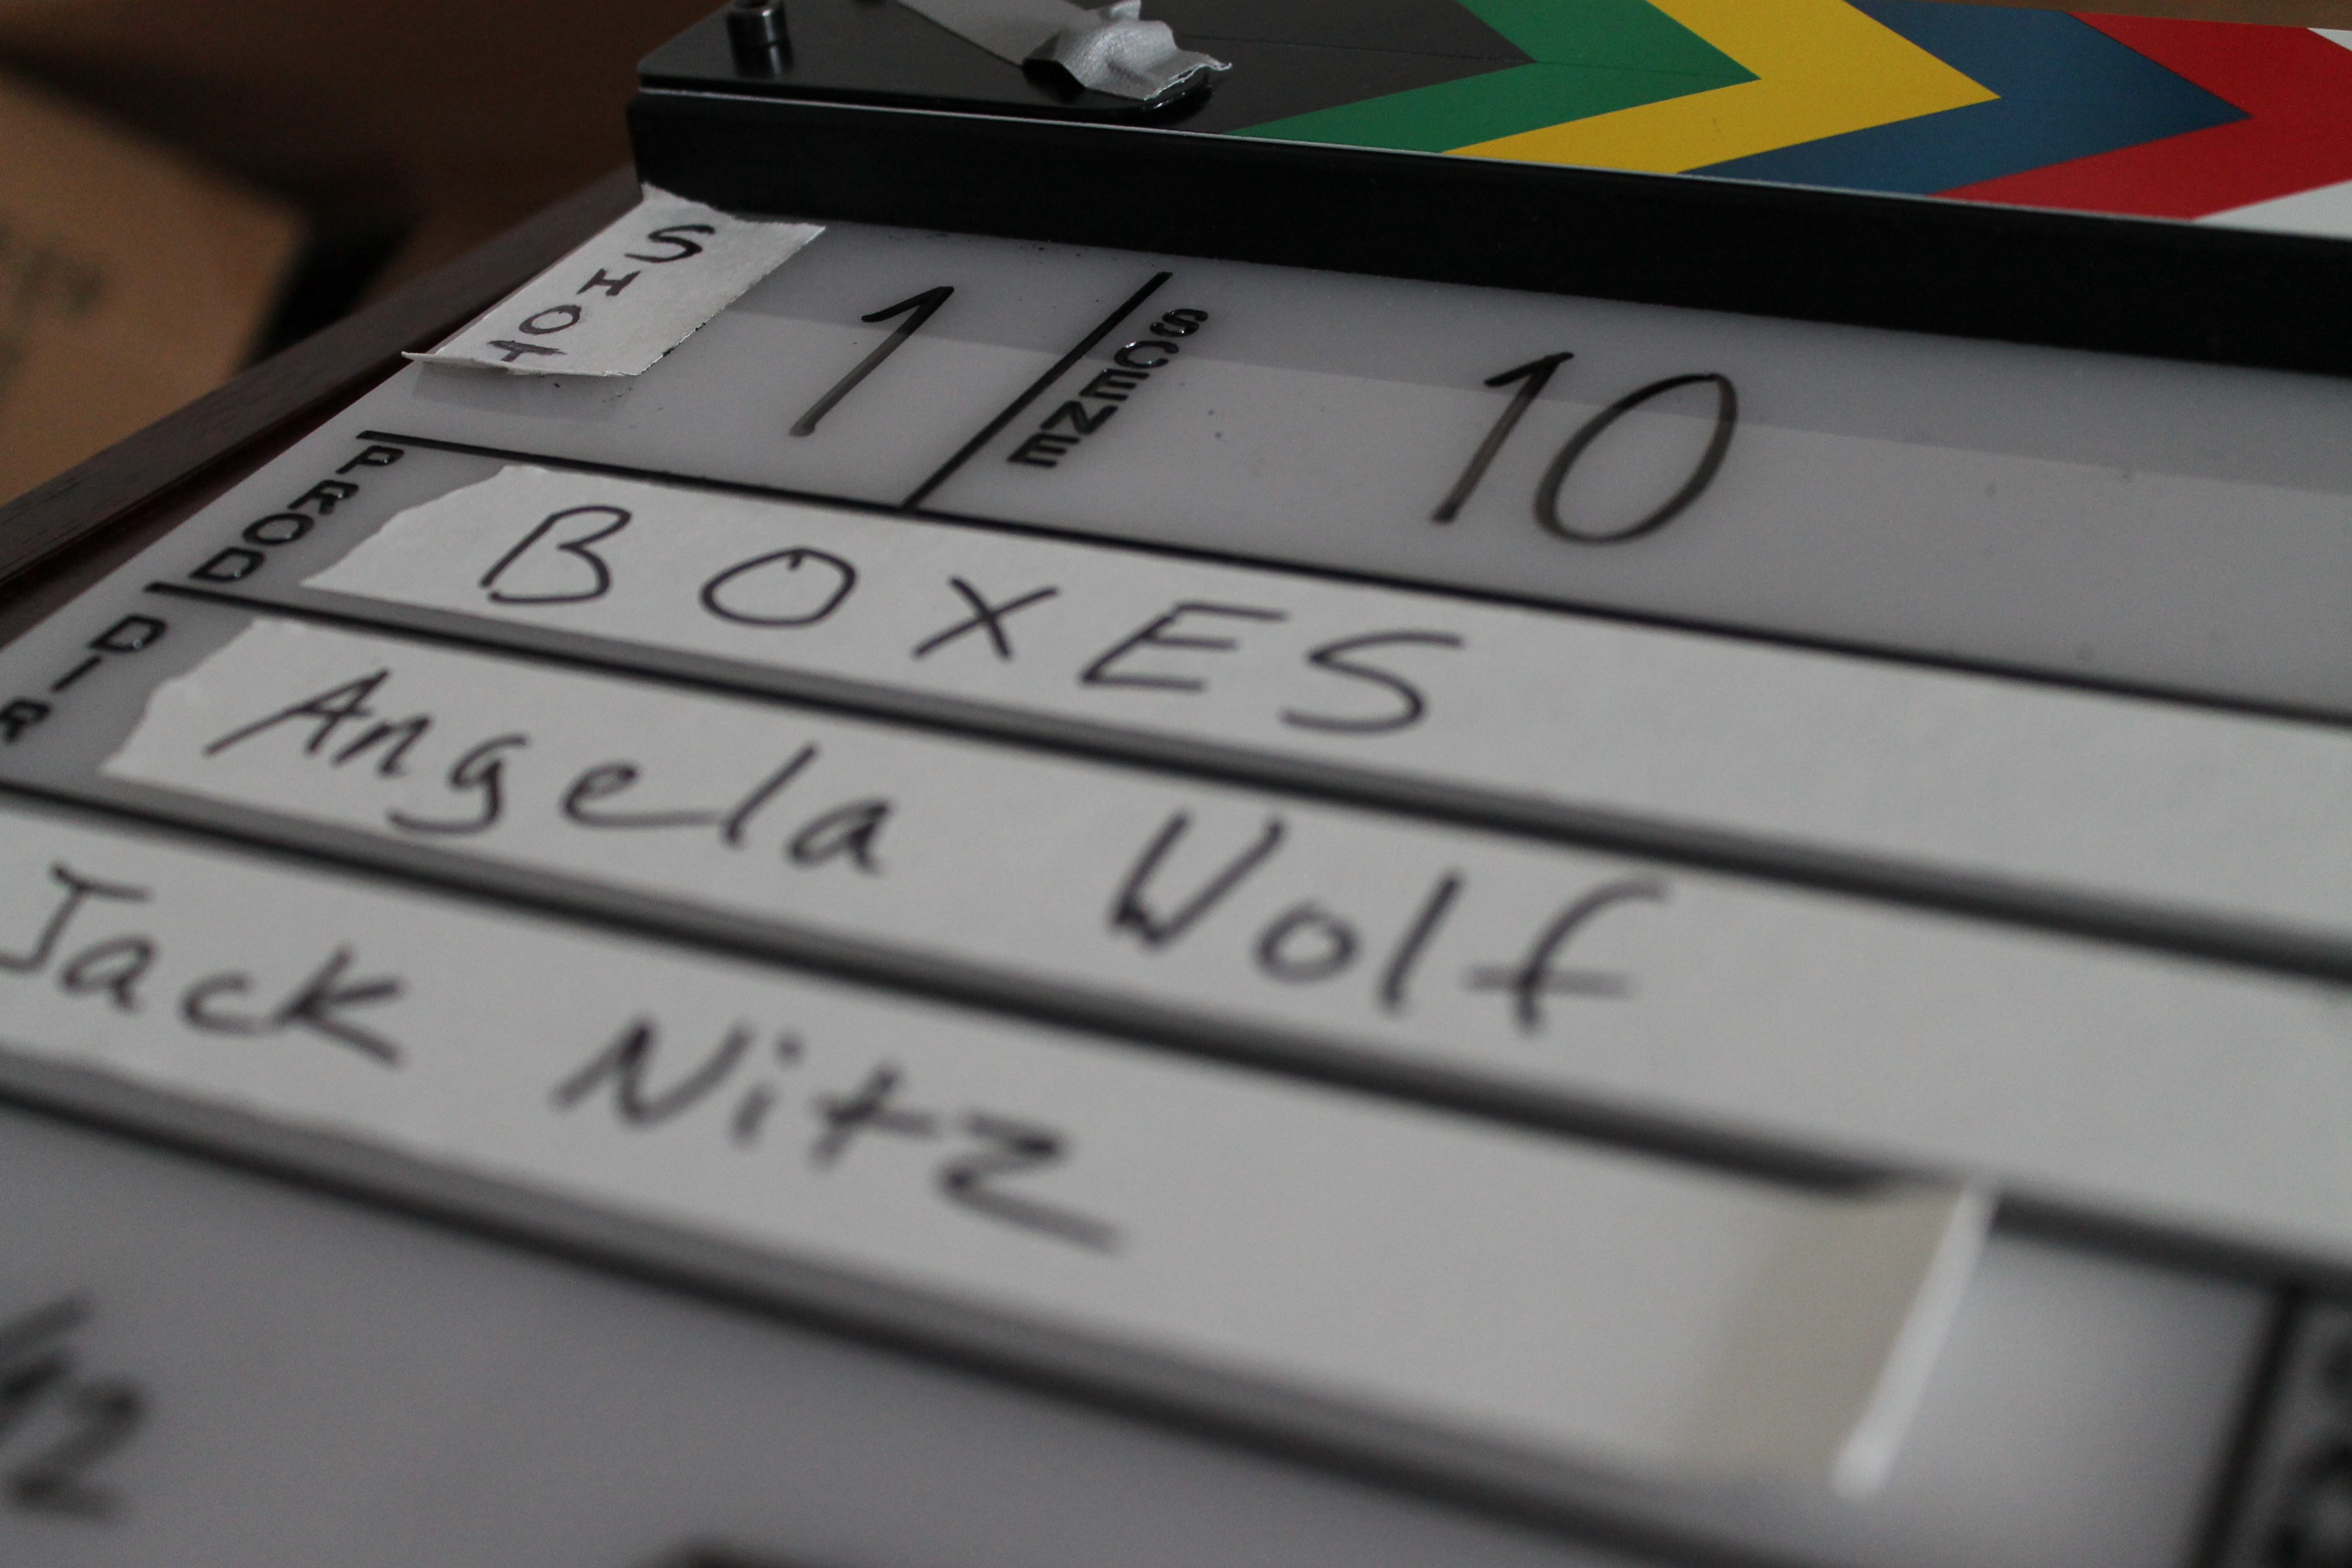 SHOT 1 SCENE 10
PROD BOXES
DIR Angela Wolf
Jack Nitz
12